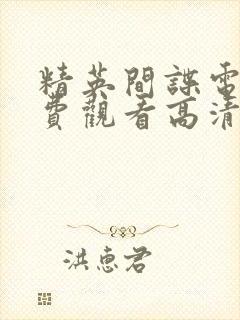 精英間諜電
費觀看高清
洪惠君